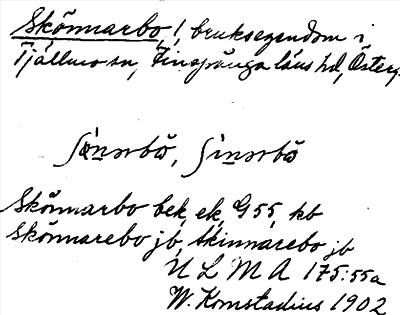 Skönnarbo, 1, bruksegendom i
Tjällmo sn, Finspånga läns hd, Österg.
Skönnarbo bek, ek, G55, kb
Skönnarebo jb, Skinnarebo jb
U L M A 175:55a
W. Komstadius 1902